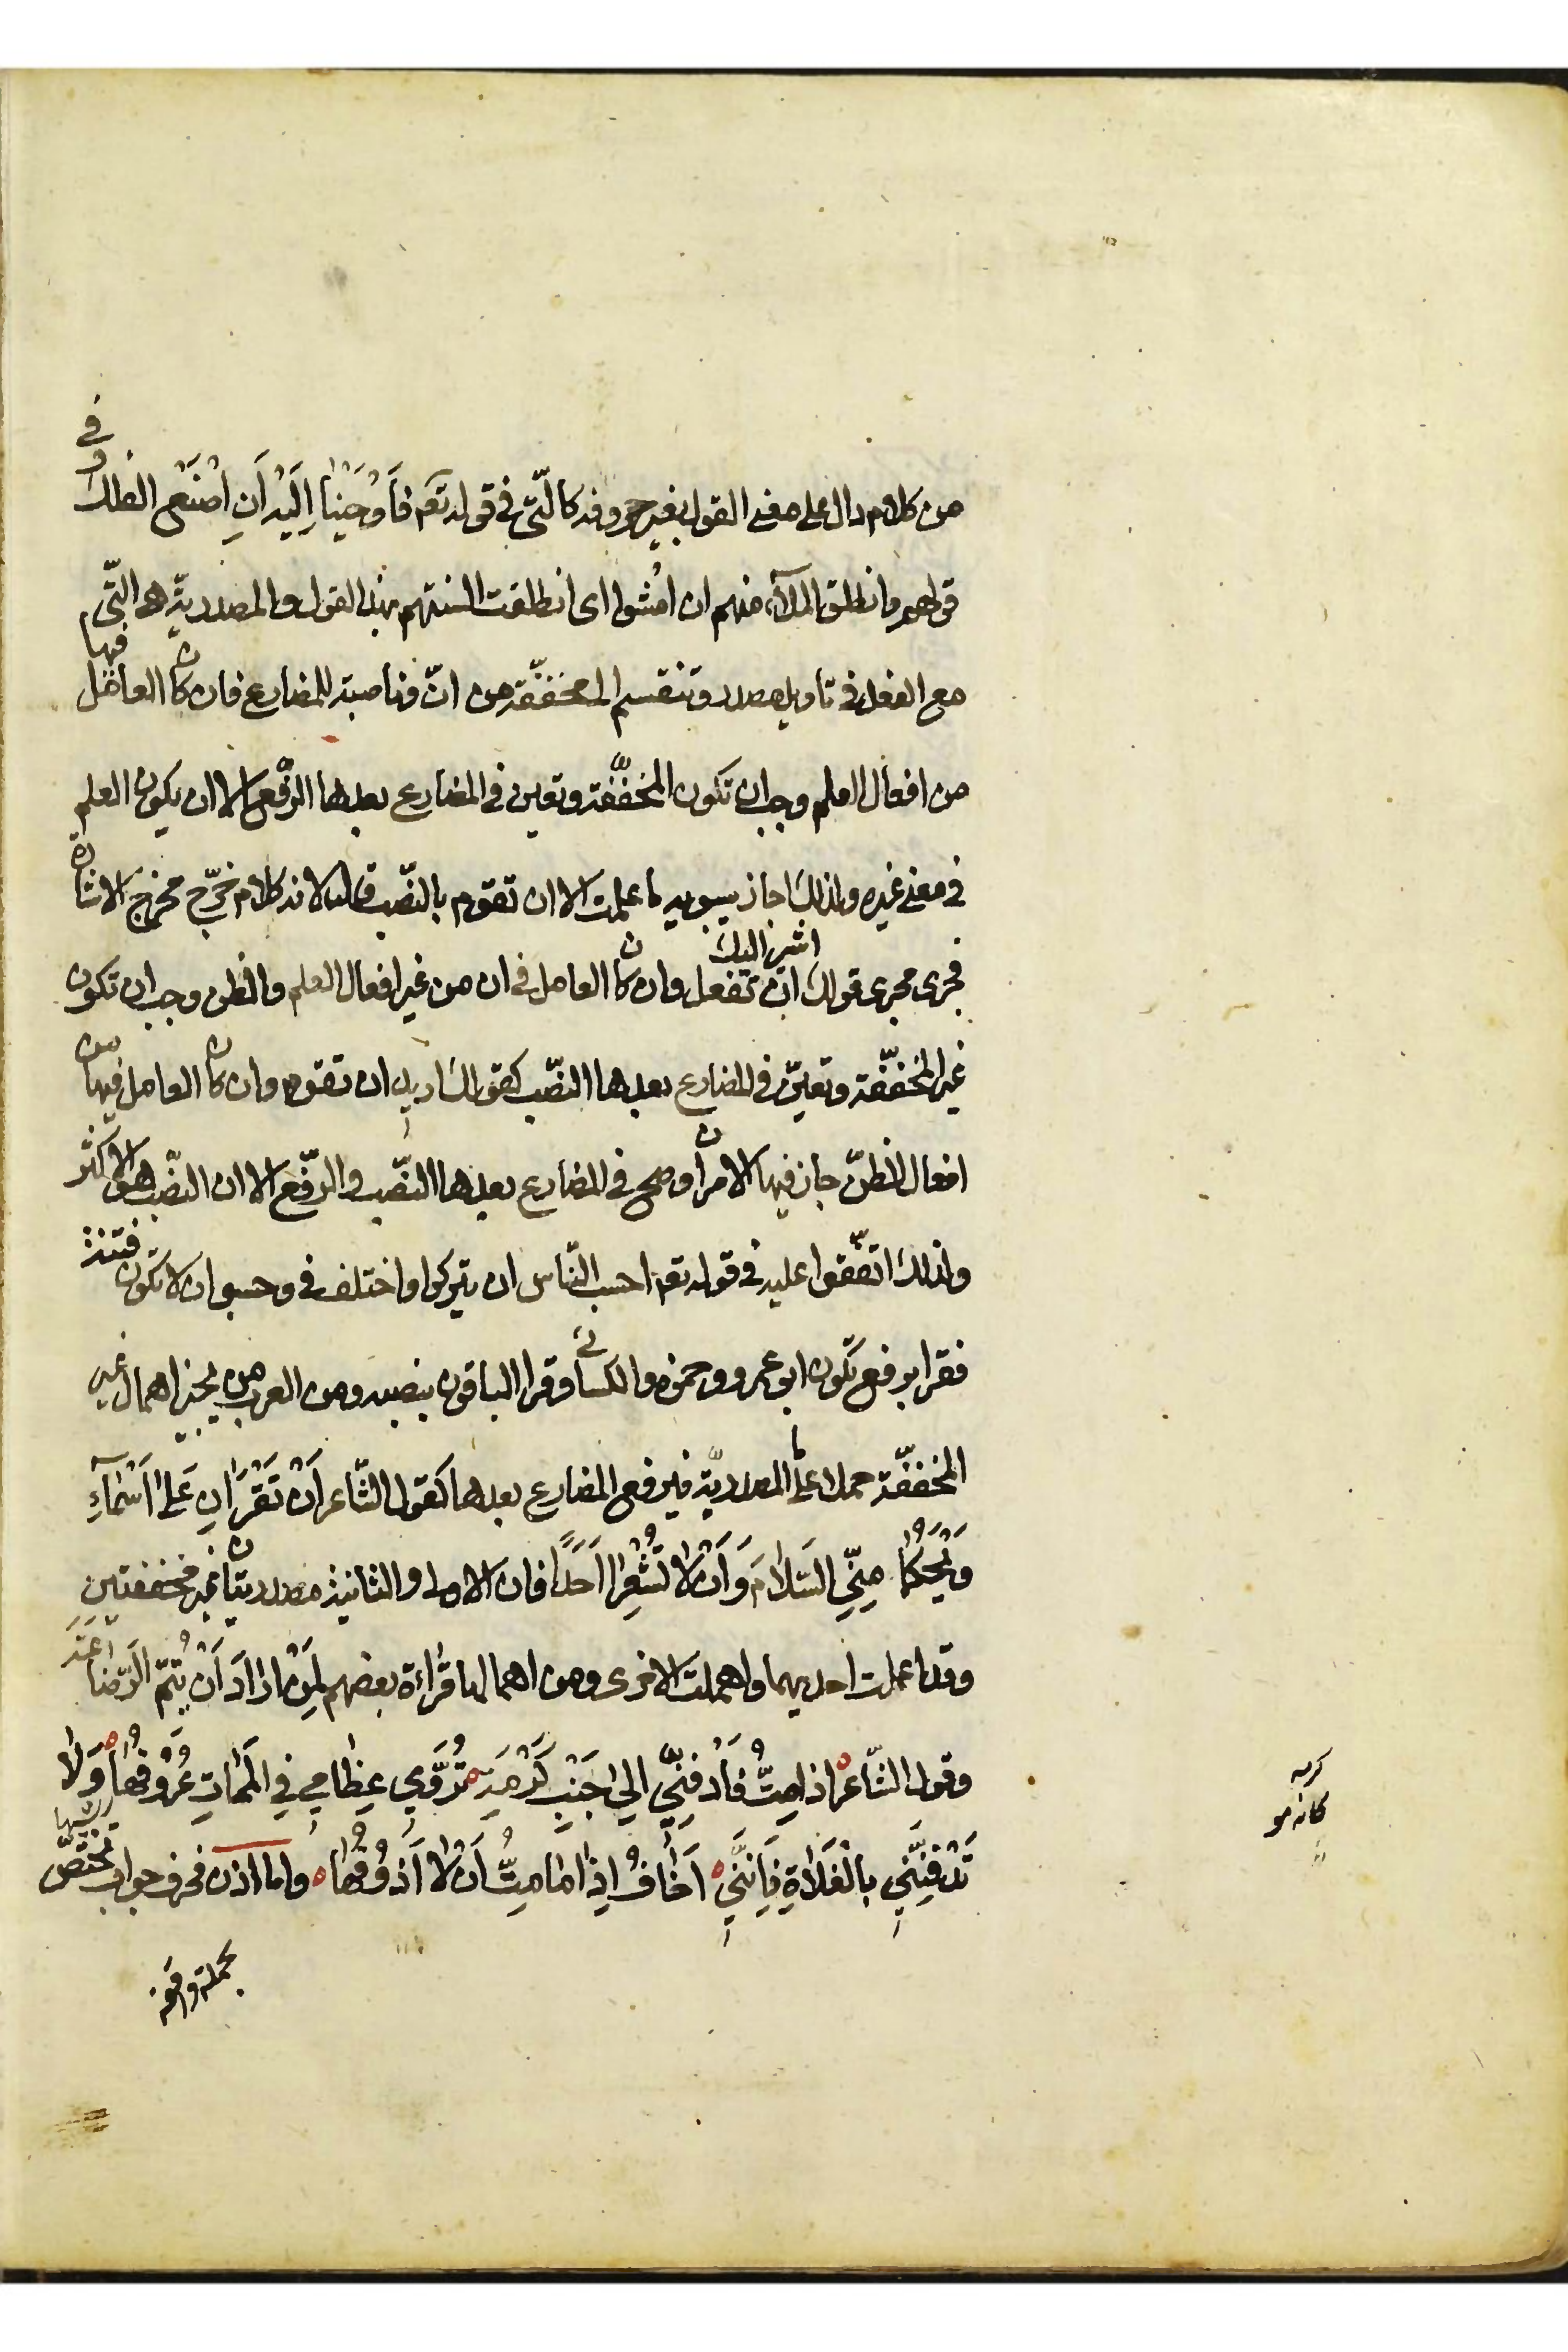 من كلام دال على معنى القول بغير حروفه كالّتي في قوله تعم فَاَوْحَيْنٰا اِلَيْهِ اَنِ اصْنَعِ الفلك وفي
قولهم وانطلق الملأ منهم ان امشوا اى انطلقت السنتهم بهذا القول والمصدريّة هى الّتى
مع الفعل فى تاويل مصدر وتنقسم الى مخفّفة من انّ وناصبة للمضارع فان كان العامل فيها
من افعال العلم وجب ان تكون المخفّفة وتعين فى المضارع بعدها الرّفع الا ان يكون العلم
فى معنى غيره ولذلك اجاز سيبويه ما علمت الا ان تقوم بالنصّب قال لانه كلام خرّج مخرج الاشارة
فجرى مجرى قولك اشير اليك ان تفعل وان كان العامل فى ان من غير افعال العلم والظن وجب ان تكون
غير المخفّفة وتعيّن فى المضارع بعدها النصّب كقولك اريد ان تقوم وان كان العامل فيها من
افعال الظنّ جاز فيها الامران وصح فى المضارع بعدها النصّب والرّفع الا ان النصّب هو الاكثر
ولذلك اتّفقوا عليه فى قوله تعم احسب النّاس ان يتركوا واختلف فى وحسبوا ان لا تكون فتنة
فقرا برفع تكون ابو عمرو وحمزه والكسائى وقرا الباقون بنصبه ومن العرب من يجيز اهمال غير
المخفّفة حملا على ما المصدريّة فيرفع المضارع بعدها كقول الشّاعر اَنْ تَقْرَاٰنِ عَلىٰ اَسْمٰآءِ
وَيْحَكُمٰا مِنّي السَّلاٰمَ وَاَنْ لاٰ تُشْعِرٰا اَحَدًا فان الاولى والثانية مصدريتان غير مخففتين
وقد اعملت احديهما واهملت الاخرى ومن اهمالها قراءة بعضهم لِمَنْ اَرٰادَ اَنْ يُتِمُّ الرَّضٰاعَةَ
وقول الشّاعر اذا مِتُّ فَادْفِنّي الى جَنْبِ كَرْمَةٍ تُرَوّي عِظٰامي فِي المَمٰاتِ عُرُوقُهٰا وَلاٰ
تَدْفِنَنّي بِالْفَلاٰةِ فَاِنَّني اَخٰافُ اِذٰا مٰا مِتُّ اَنْ لاٰ اَذُوقُهٰا واما اذن فحرف جواب تختصّ
بجملة واقعة
كرمه
كانه مو